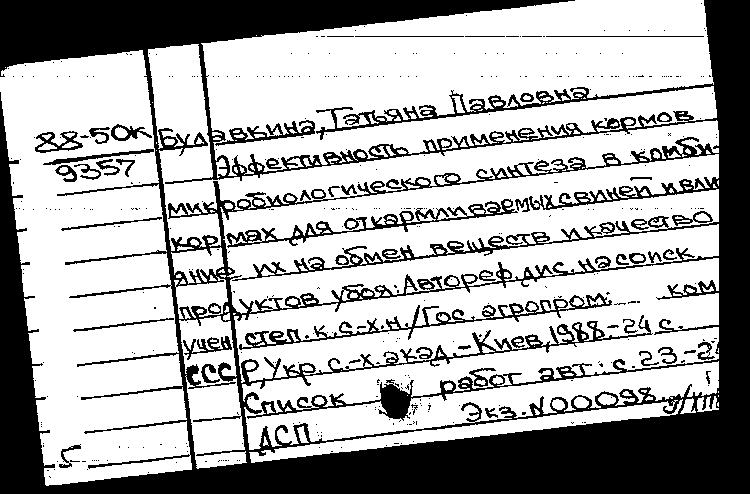 88-50к Булавкина, Татьяна Павловна.
9357 Эффективность применения кормов
микробиологического синтеза в комби-
кормах для откармливаемых свиней и вли
яние их на обмен веществ и качество
продуктов убоя: Автореф. дис. на соиск.
учен. степ. к. с.-х. н. / Гос. агропром. ком
СССР, Укр. с.-х. акад. - Киев, 1988. - 24 с.
Список работ авт.: с. 23. - 2
Экз. N00098.
5 ДСП